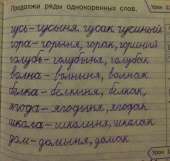 Продолжи ряды однокоренных слов.
гусь-гусыня, гусак гусиный
гора-горыня, горак, горный
голубь-голубыня, голубак
волна-волныня, волнак
белка-белкыня, белкак
ягода-ягодыня, ягодак
школа-школыня, школак
дом-домыня, домак